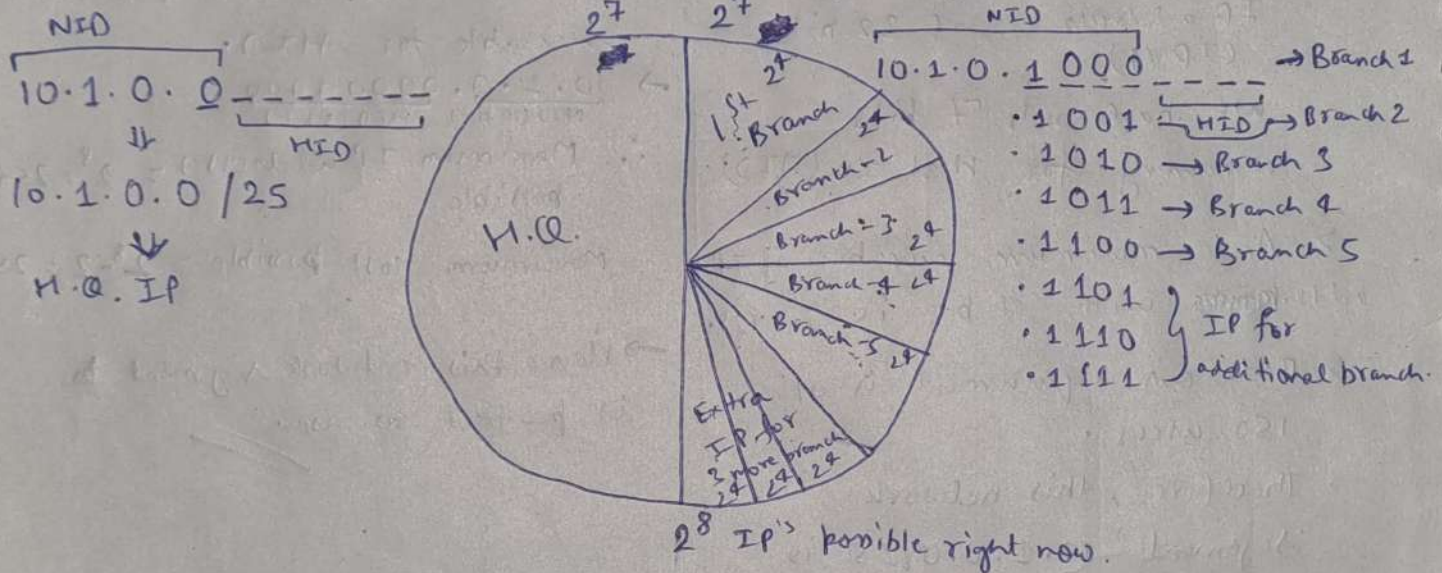 NID
10.1.0.0_ _ _ _ _ _ _
HID
⇓
10.1.0.0/25
⇓
H.Q. IP
2^7
2^7
H.Q.
2^4
1st Branch
2^4
Branch-2
Branch-3
2^4
Branch-4 2^4
Branch-5
2^4
Extra
IP for
3 more branch
2^4 2^4 2^4
2^8 IP's possible right now.
NID
10.1.0.1000_ _ _ _ → Branch 1
.1001 HID → Branch 2
.1010 → Branch 3
.1011 → Branch 4
.1100 → Branch 5
.1101
.1110
.1111
} IP for
additional branch.